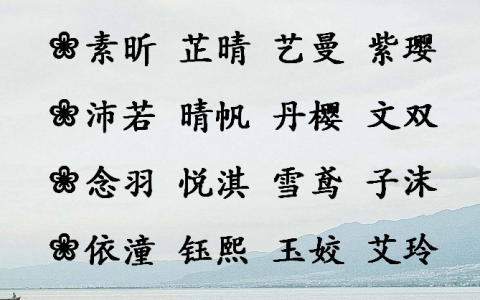 ❀素昕 芷晴 艺曼 紫璎
❀沛若 晴帆 丹樱 文双
❀念羽 悦淇 雪鸢 子沫
❀依潼 钰熙 玉姣 艾玲